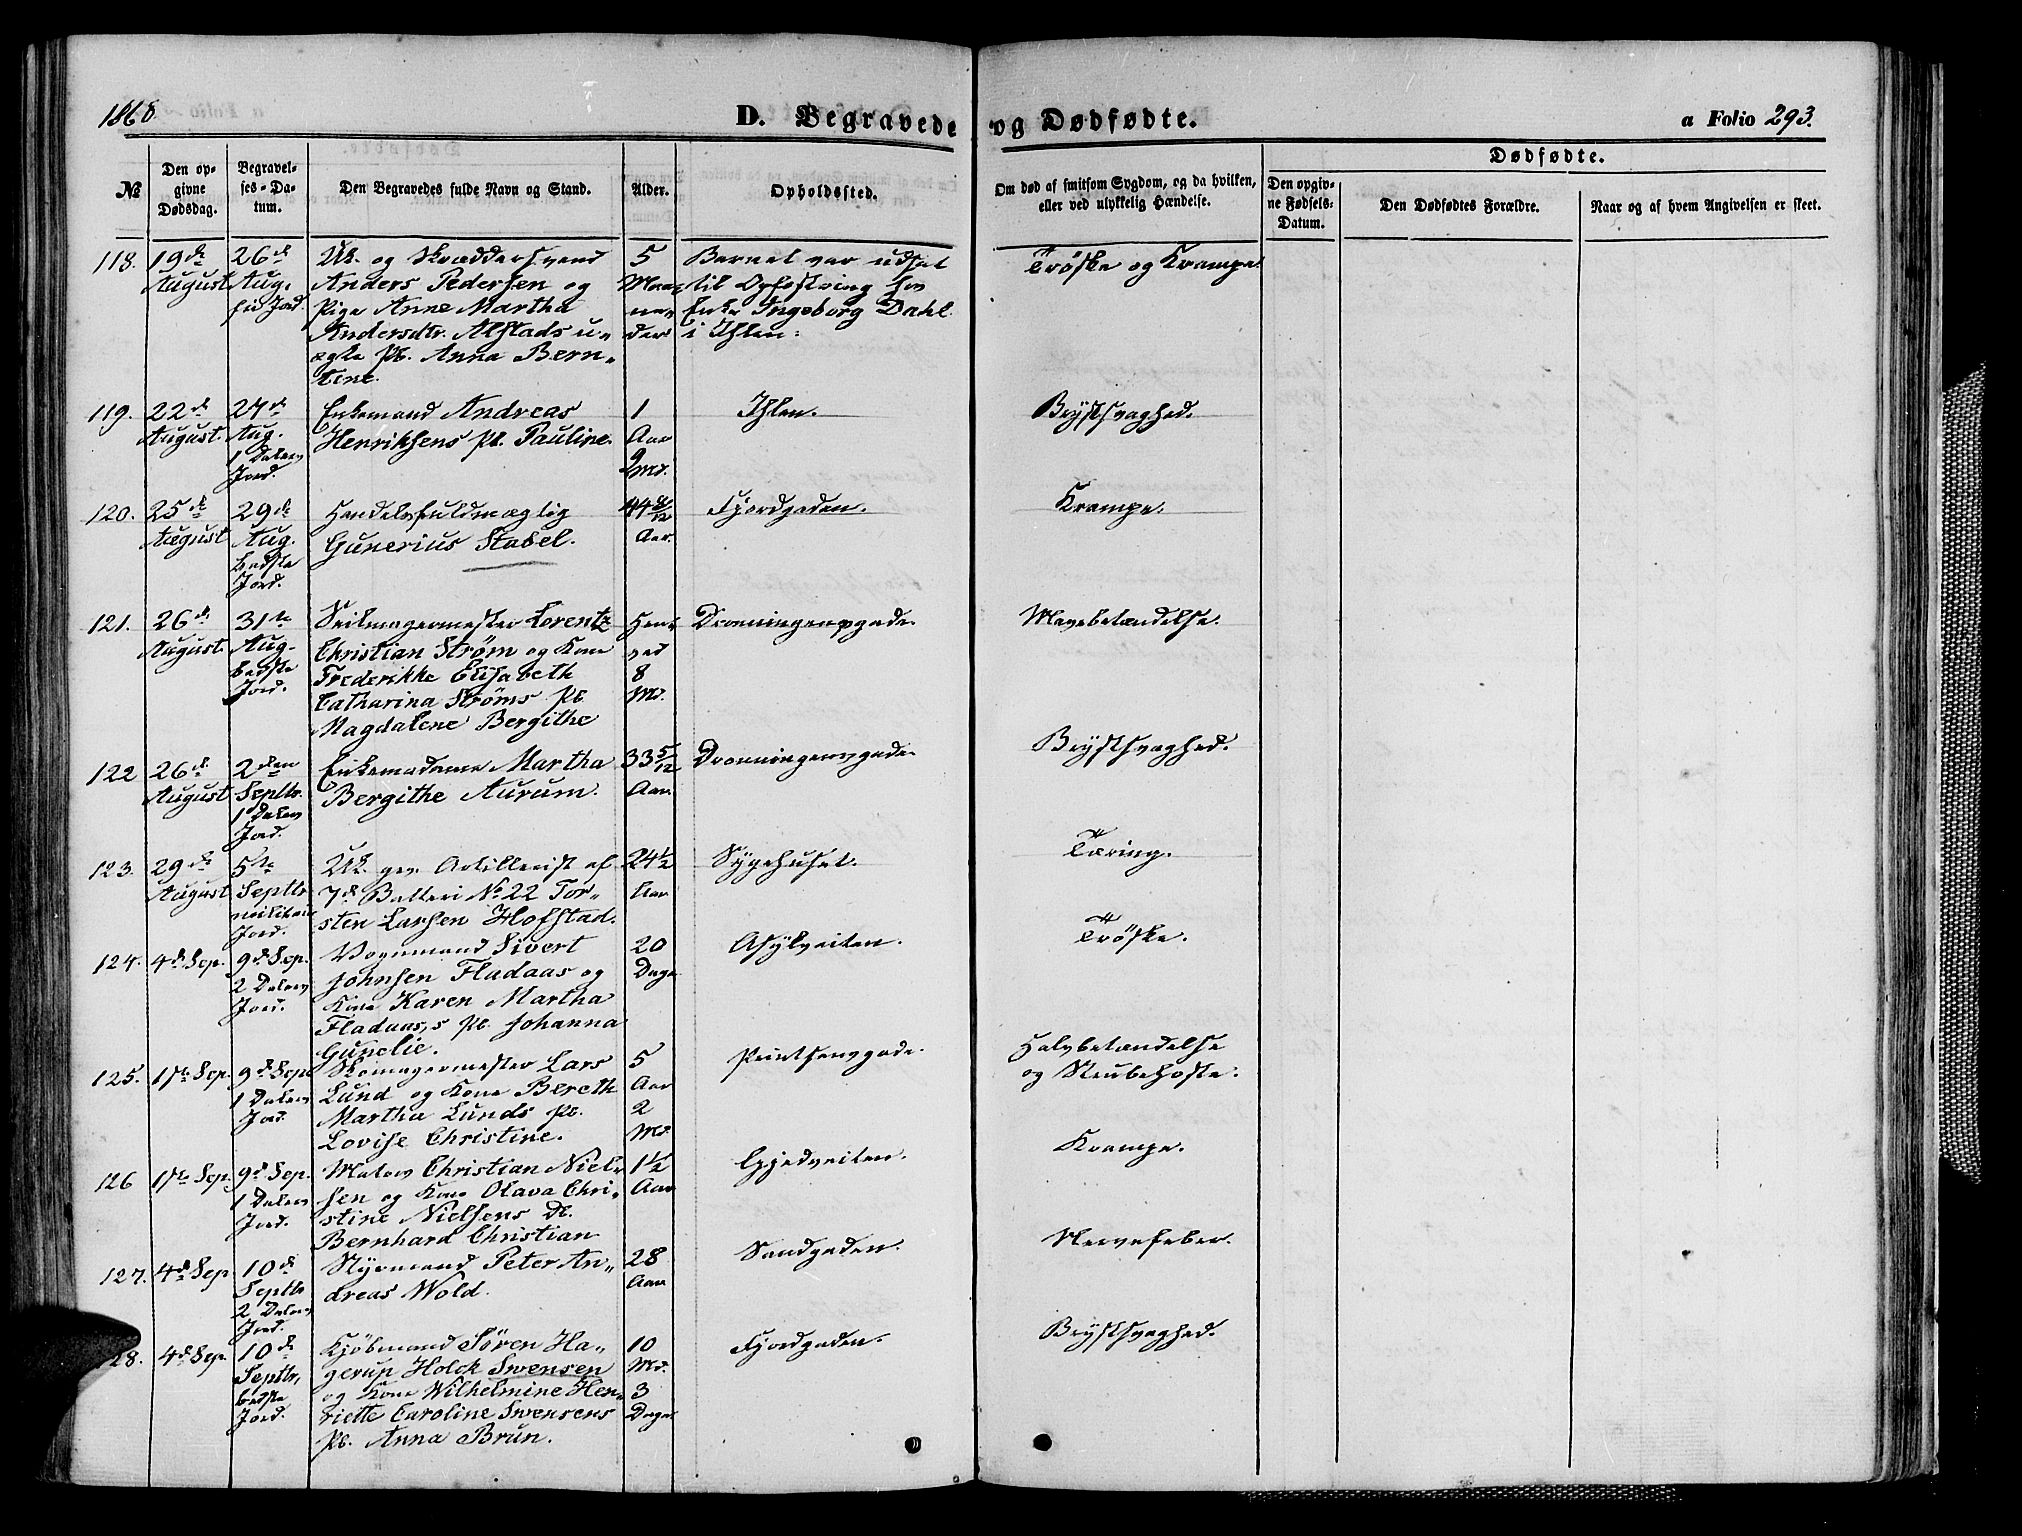 1868
D. Begravede og Dødfødte.
a Folio 293.
№
Den opgivne Dødsdag.
Begravelses-Datum.
Den Begravedes fulde Navn og Stand.
Alder.
Opholdssted.
Om død af smitsom Sygdom, og da hvilken, eller ved ulykkelig Hændelse.
Dødfødte.
Den opgivne Fødsels-Datum.
Den Dødfødtes Forældre.
Naar og af hvem Angivelsen er skeet.
118. 19de 26de Uk. og Skræddersvend 5 Barnet var udsat Trøske og Krampe.
August Aug. Anders Pedersen og Maa- til Opfostring hos
fri Jord. Pige Anne Martha ne- Enke Ingeborg Dahl
Andersdtr. Alstads u- der i Ihlen.
ægte pb. Anna Bern-
tine.
119. 22de 27de Enkemand Andreas 1 Ihlen. Brystsvaghed.
August. Aug. Henriksens pb. Pauline. Aar
1 Dalers 2 Md.
Jord.
120. 25de 29de Handelsfuldmægtig 44 Fjordgaden. Krampe.
August Aug. Gunerius Stabel. Aar.
bedste
Jord.
121. 26de 31te Seilmagermester Lorentz Dronningensgade. Mavebetændelse.
August. Aug. Christian Strøm og Kone
bedste Frederikke Elisabeth 8
Jord. Catharina Strøms pb. Md.
Magdalene Bergithe
122 26de 2den Enkemadame Martha 33 5/12 Dronningensgade. Brystsvaghed.
August Septbr. Bergithe Aurum. Aar.
1 Dalers
Jord.
123. 29de 5te Uk. gev. Artillerist af 24½ Sygehuset. Tæring.
August Septbr. 7de Batteri No 22 Tor- Aar
militair sten Larsen Hofstad.
Jord.
124. 4de Sep. 9de Sep. Vognmand Sivert 20 Asylveiten. Trøske.
2 Dalers Johnsen Fladaas og Dage
Jord. Kone Karen Martha
Fladaas's pb. Johanna
Gunelie.
125. 1ste Sep. 9de Sep. Skomagermester Lars 5 Printsensgade. Halsbetændelse
1 Dalers Lund og Kone Bereth Aar og Strubehoste.
Jord. Martha Lunds pb. 2
Lovise Christine. Md.
126 1ste Sep. 9de Sep. Maler Christian Niel- 1½ Gjedveiten. Krampe.
1 Dalers sen og Kone Olava Chri- Aar
Jord. stine Nielsens Db.
Bernhard Christian
127. 4de Sep 10de Styrmand Peter An- 28 Sandgaden. Nervefeber.
Septbr dreas Wold. Aar
2 Dalers
Jord.
128. 4de Sep. 10de Kjøbmand Sören Ha- 10 Fjordgaden. Brystsvaghed.
Septbr. gerup Holck Swensen Md.
bedste og Kone Wilhelmine Hen- 3
Jord. riette Caroline Swensens Dage
pb. Anna Brun.